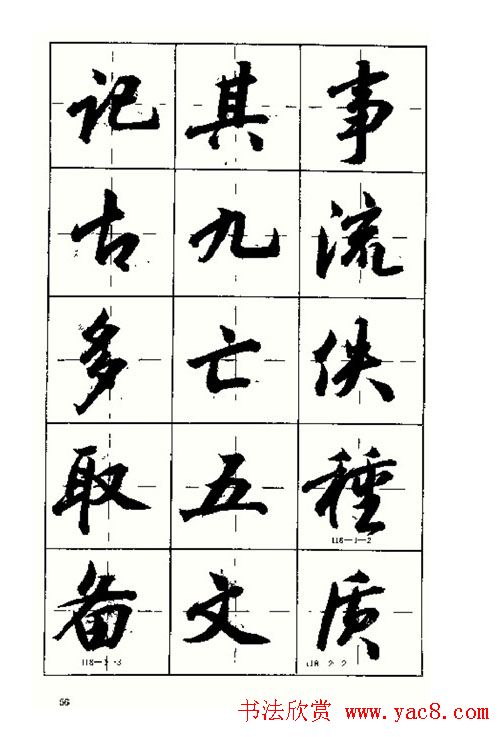 记其事
古九流
多亡佚
取五種
118—1—2
备文质
118—2-3
118-2-2
56
书法欣赏 www.yac8.com